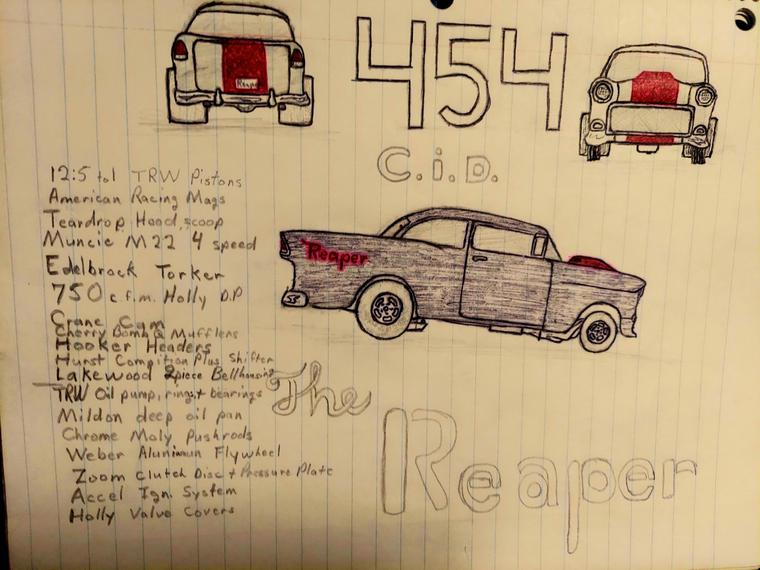 454
C.i.D.
Reaper
12:5 to 1 TRW Pistons
American Racing Mags
Teardrop Hood scoop
Muncie M22 4 speed
Edelbrock Torker
750 c.f.m. Holly D.P
Crane Cam
Cherry Bomb & Mufflers
Hooker Headers
Hurst Compition Plus Shifter
Lakewood 2piece Bellhousing
TRW Oil pump, rings + bearings
Mildon deep oil pan
Chrome Moly Pushrods
Weber Aluminun Flywheel
Zoom Clutch Disc + Pressure Plate
Accel Ign. System
Holly Valve Covers
Reaper
The
Reaper